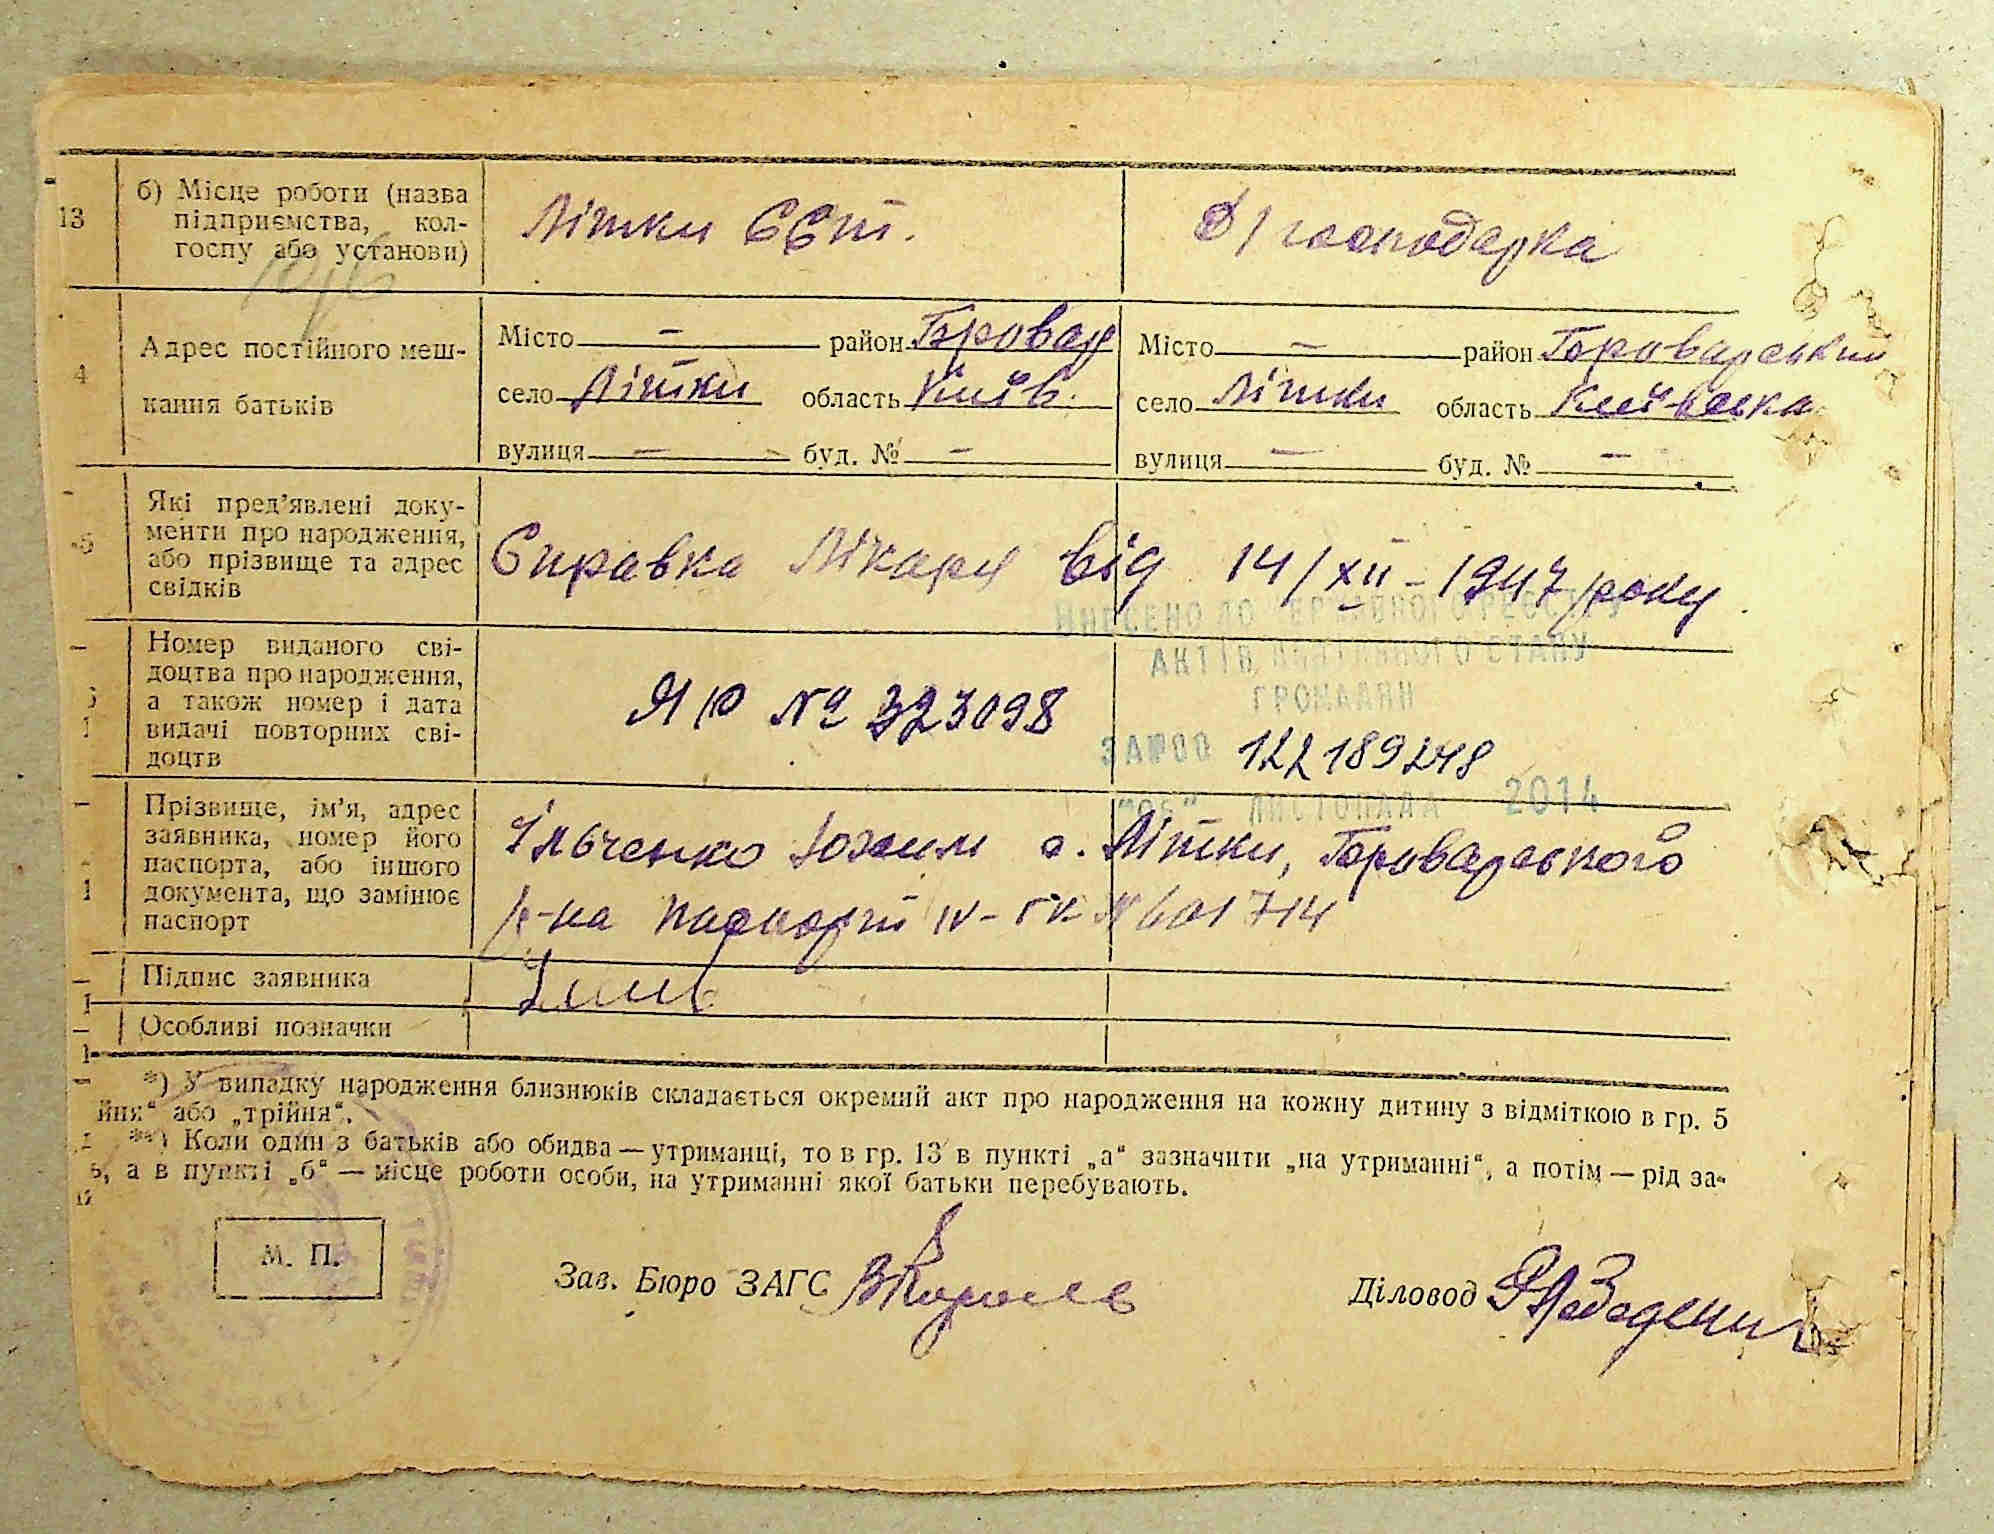 13
б) Місце роботи (назва
підприємства, кол-
госпу або установи)
Літки ССт.
д/господарка
4
Адрес постійного меш-
кання батьків
Місто — район Бровар
село Літки область Київ.
вулиця — буд. № —
Місто — район Броварський
село Літки область Київська
вулиця — буд. № —
Які пред’явлені доку-
менти про народження,
або прізвище та адрес
свідків
Справка Лікаря від 14/XII-1947 року
Номер виданого сві-
доцтва про народження,
а також номер і дата
видачі повторних сві-
доцтв
ЯЮ № 323098
ВНЕСЕНО ДО ДЕРЖАВНОГО РЕЄСТРУ
АКТІВ ЦИВІЛЬНОГО СТАНУ
ГРОМАДЯН
ЗА №00 122189248
"06" ЛИСТОПАДА 2014
Прізвище, ім’я, адрес
заявника, номер його
паспорта, або іншого
документа, що замінює
паспорт
Ільченко Юхим с. Літки, Броварського
р-на паспорт IV-ГК № 601714
Підпис заявника
Особливі позначки
*) У випадку народження близнюків складається окремий акт про народження на кожну дитину з відміткою в гр. 5
йня“ або „трійня“.
**) Коли один з батьків або обидва — утриманці, то в гр. 13 в пункті „а“ зазначити „на утриманні“, а потім — рід за-
ь, а в пункті „б“ — місце роботи особи, на утриманні якої батьки перебувають.
М. П.
Зав. Бюро ЗАГС
Діловод